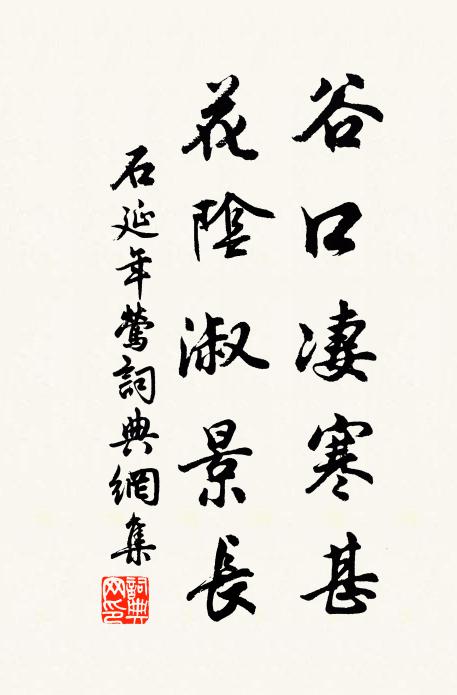 谷口淒寒甚
花陰淑景長
石延年鶯詞典網集
詞典網印